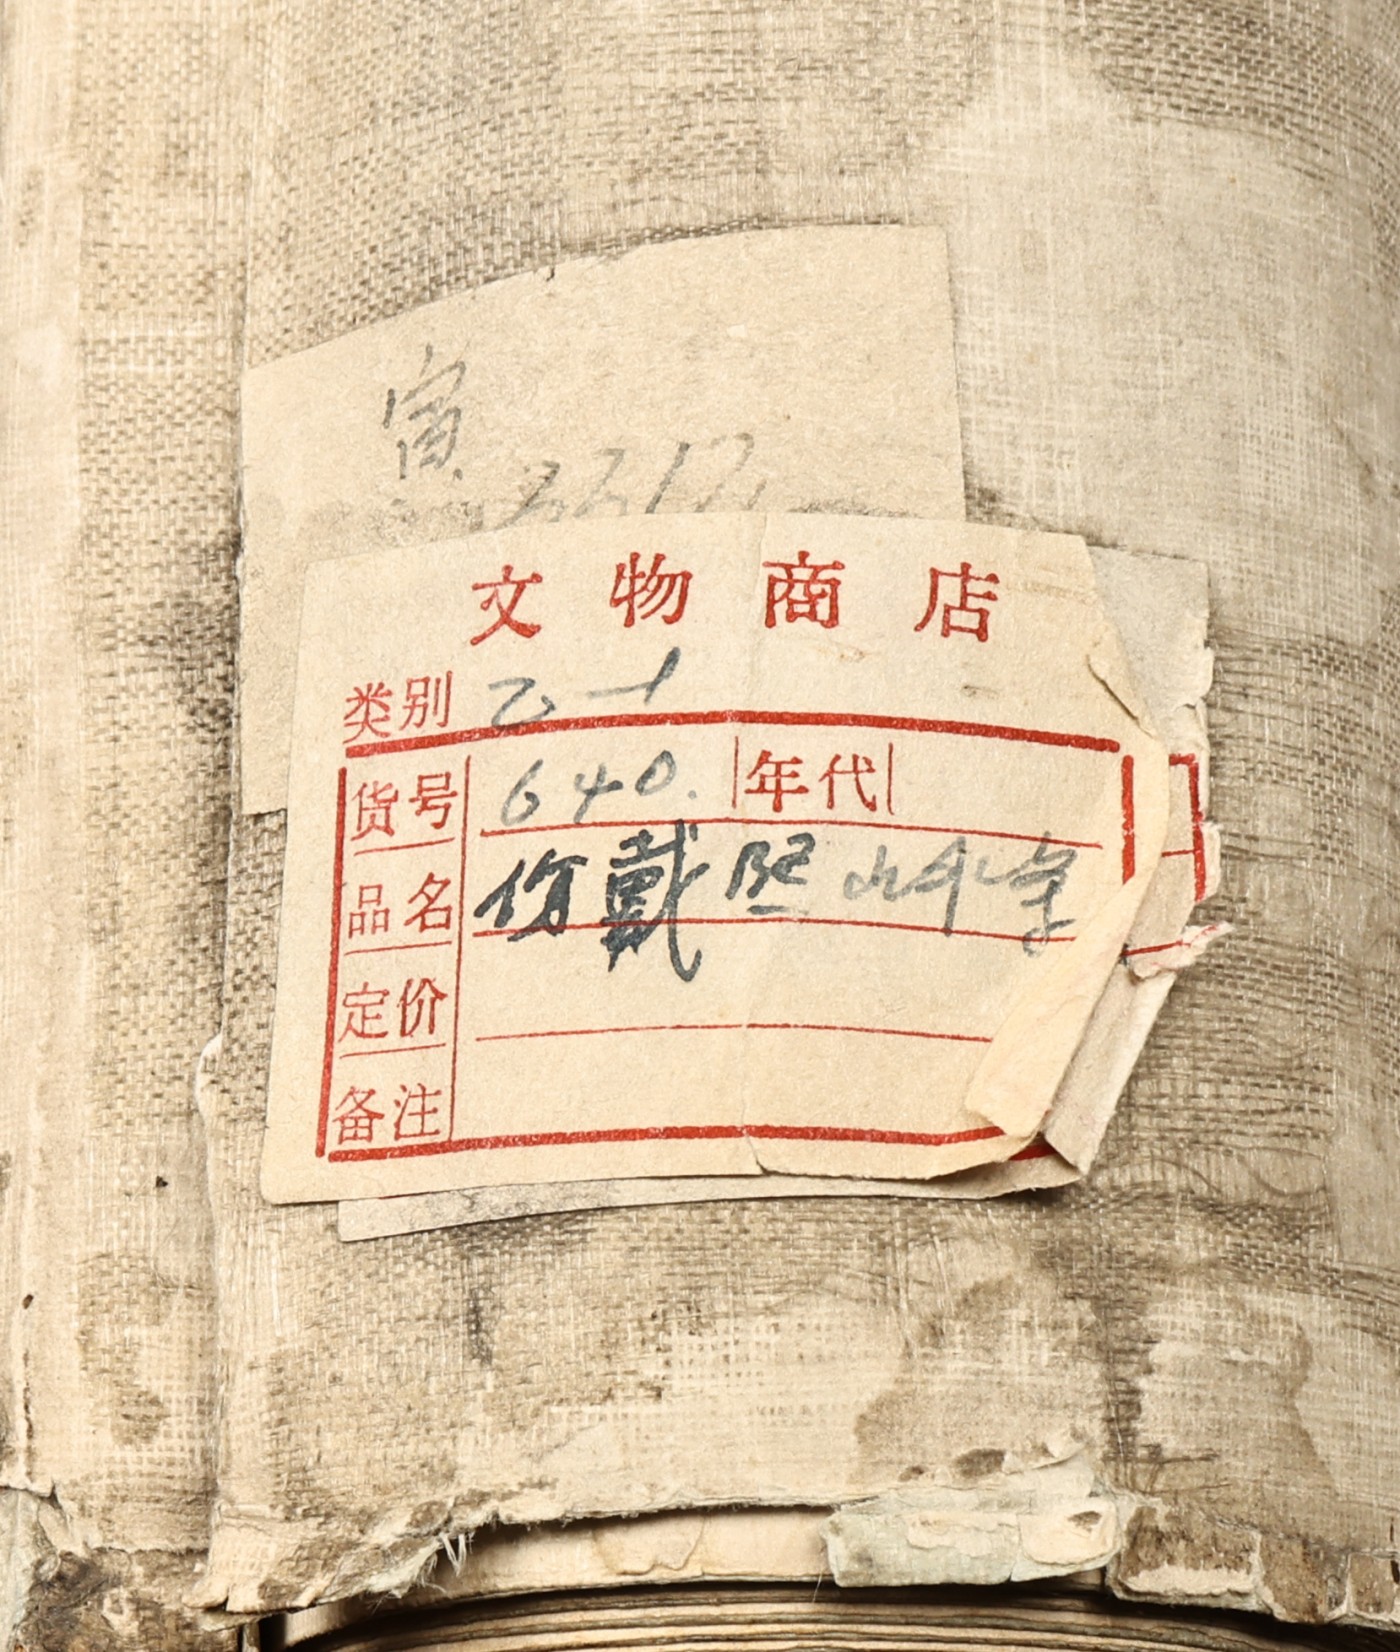 寅
文物商店
类别 乙-1
货号 640. 年代
品名 仿戴熙山水
定价
备注